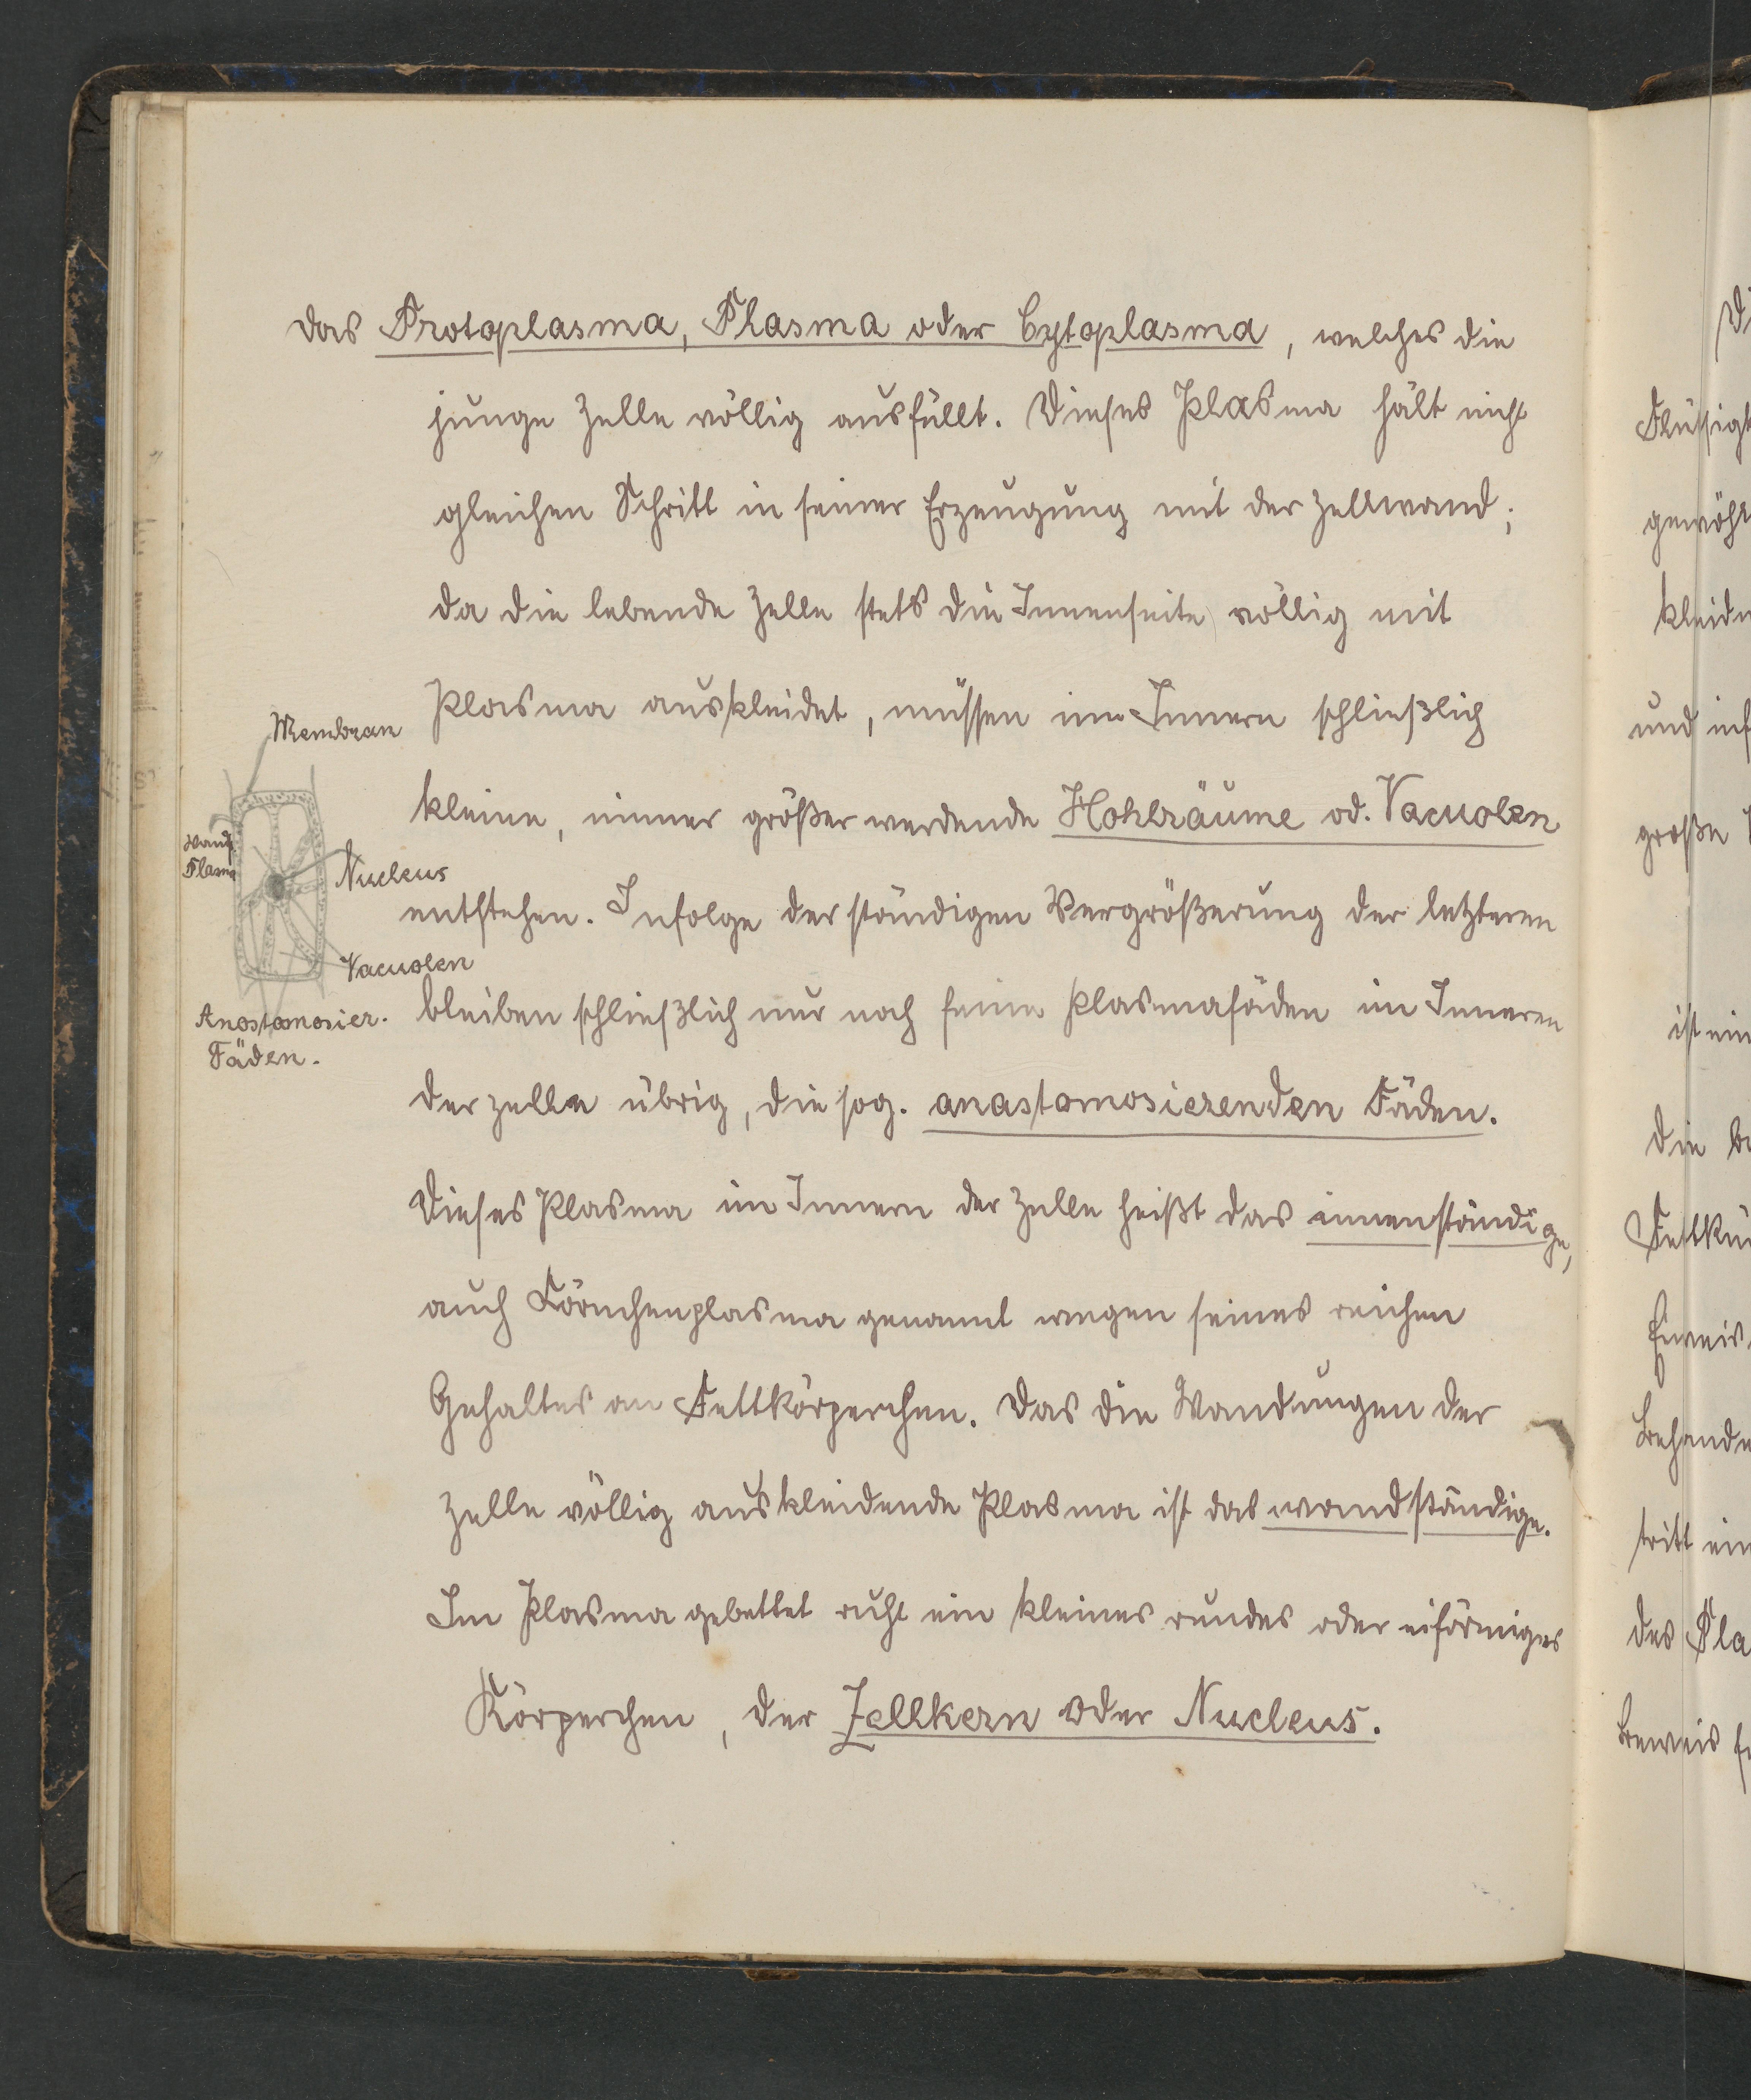 das Protoplasma, Plasma oder Cytoplasma, welches die
junge Zelle völlig ausfüllt. Dieses Plasma hält nicht
gleichen Schritt in seiner Erzeugung mit der Zellwand;
da die lebende Zelle stets die Innenseite völlig mit
Plasma auskleidet, müssen im Innern schließlich
kleine, immer größer werdende Hohlräume od. Vacuolen
entstehen. Infolge der ständigen Vergrößerung der letzteren
bleiben schließlich nur noch feine Plasmafäden im Inneren
der Zelle übrig, die sog. anastomosierenden Fäden.
Dieses Plasma im Innern der Zelle heißt das innenständige,
auch Körnchenplasma genannt wegen seines reichen
Gehaltes an Fettkörperchen. Das die Wandungen der
Zelle völlig auskleidende Plasma ist das wandständige.
Im Plasma gebettet ruht ein kleines rundes oder eiförmiges
Körperchen, der Zellkern oder Nucleus.
Membran
Wand
Plasma
Nucleus
Vacuolen
Anostomosier.
Fäden.
Di
Flüssigk
gewöhn
kleide
und inf
große
ist ein
die be
Fettkü
Eiweis
behande
tritt ein
des Pla
beweis